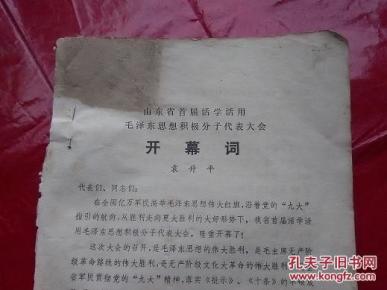 山东省首届活学活用
毛泽东思想积极分子代表大会
开幕词
袁升平
代表们、同志们：
在全国亿万军民高举毛泽东思想伟大红旗，沿着党的“九大”
指引的航向，从胜利走向更大胜利的大好形势下，我省首届活学活
用毛泽东思想积极分子代表大会，隆重开幕了！
这次大会的召开，是毛泽东思想的伟大胜利，是毛主席无产阶
级革命路线的伟大胜利，是无产阶级文化大革命的伟大胜利
省军民贯彻党的“九大”精神，落实《批示》、《十条》的
孔夫子旧书网